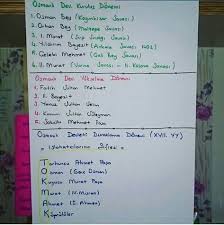 Osmanlı Dev. Kuruluş Dönemi
1. Osman Bey (Koyunhisar Savaşı)
2. Orhan Bey (Maltepe Savaşı)
3. I. Murat (Sırp Sındığı Savaşı)
4. Yıldırım Bayezit (Ankara Savaşı 1402)
5. Çelebi Mehmet
6. II. Murat (Varna Savaşı - II. Kosova Savaşı)
Osmanlı Dev. Yükselme Dönemi
1. Fatih Sultan Mehmet
2. II. Bayezit
3. Yavuz Sultan Selim
4. Kanuni Sultan Süleyman
5. II. Selim
6. Sokullu Mehmet Paşa
Osmanlı Devleti Duraklama Dönemi (XVII. YY)
Islahatlarına Şifre
Tarhuncu Ahmet Paşa
Osman (Genç Osman)
Kuyucu Murat Paşa
Murat (IV. Murat)
Ahmet (I. Ahmet)
Köprülüler